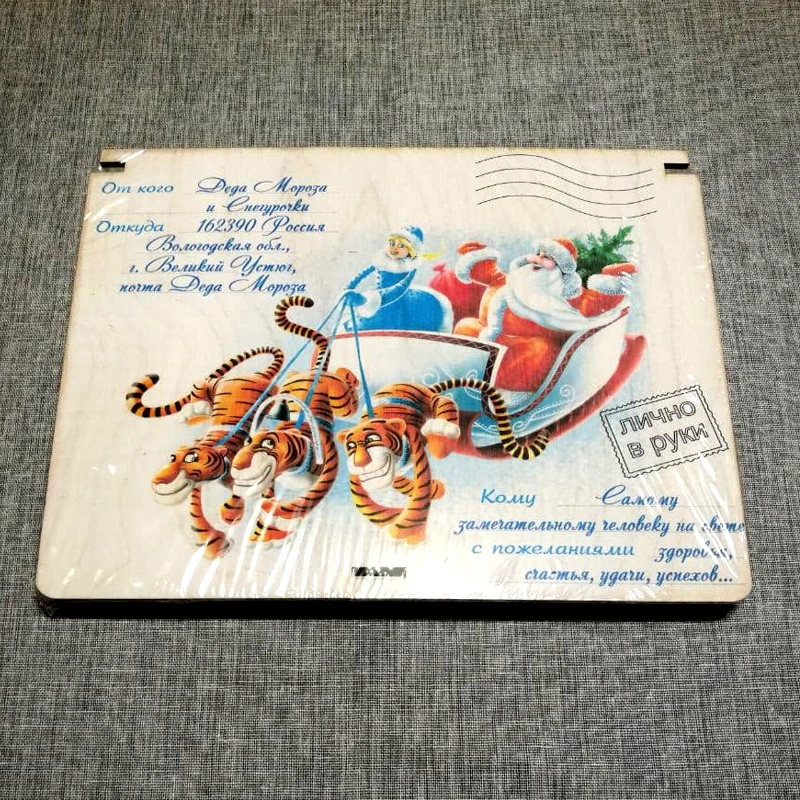 От кого Деда Мороза
и Снегурочки
Откуда 162390 Россия
Вологодская обл.,
г. Великий Устюг,
почта Деда Мороза
ЛИЧНО
В РУКИ
Кому Самому
замечательному человеку на свете
с пожеланиями здоровья,
счастья, удачи, успехов...